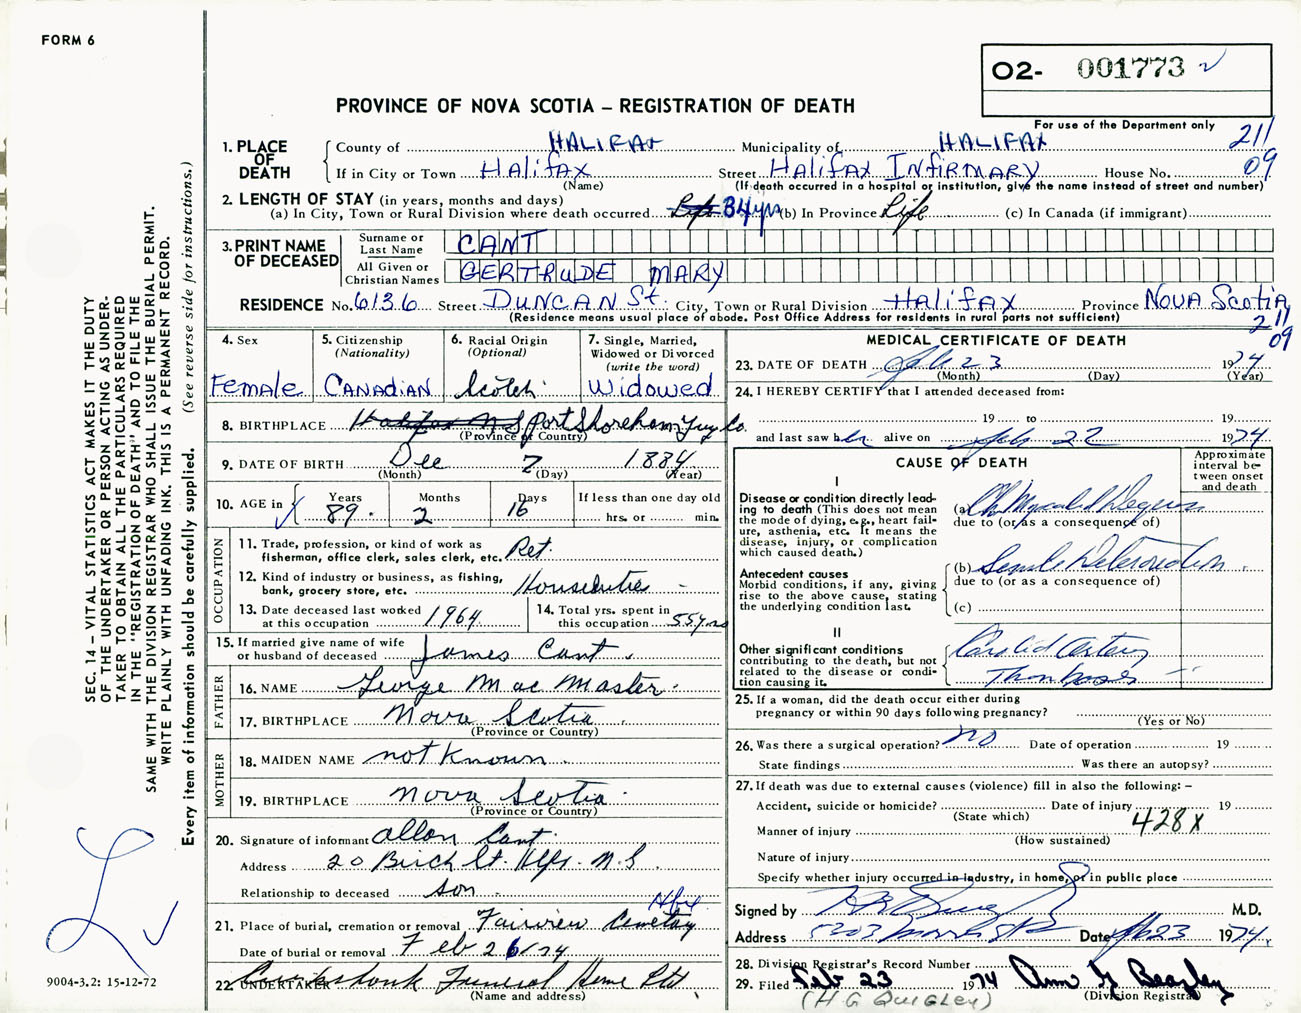 FORM 6
O2- 001773
PROVINCE OF NOVA SCOTIA – REGISTRATION OF DEATH
For use of the Department only
211
09
1. PLACE OF DEATH
County of HALIFAX Municipality of HALIFAX
If in City or Town Halifax Street Halifax Infirmary House No.
(Name) (If death occurred in a hospital or institution, give the name instead of street and number)
2. LENGTH OF STAY (in years, months and days)
(a) In City, Town or Rural Division where death occurred 34 yrs (b) In Province Life (c) In Canada (if immigrant)
3. PRINT NAME OF DECEASED
Surname or Last Name CANT
All Given or Christian Names GERTRUDE MARY
RESIDENCE No. 6136 Street DUNCAN St. City, Town or Rural Division Halifax Province Nova Scotia
(Residence means usual place of abode. Post Office Address for residents in rural parts not sufficient)
211
09
4. Sex
Female
5. Citizenship (Nationality)
CANADIAN
6. Racial Origin (Optional)
Scotch
7. Single, Married, Widowed or Divorced (write the word)
Widowed
8. BIRTHPLACE Halifax N S Port Shoreham Guy Co.
(Province or Country)
9. DATE OF BIRTH Dec 7 1884
(Month) (Day) (Year)
10. AGE in Years 89 Months 2 Days 16 If less than one day old hrs. or min.
OCCUPATION
11. Trade, profession, or kind of work as fisherman, office clerk, sales clerk, etc. Ret.
12. Kind of industry or business, as fishing, bank, grocery store, etc. Houseduties
13. Date deceased last worked at this occupation 1964
14. Total yrs. spent in this occupation 55 yrs
15. If married give name of wife or husband of deceased James Cant
FATHER
16. NAME George Mac Master
17. BIRTHPLACE Nova Scotia
(Province or Country)
MOTHER
18. MAIDEN NAME not known
19. BIRTHPLACE Nova Scotia
(Province or Country)
20. Signature of informant Allan Cant
Address 20 Birch St. Hlfx. N.S.
Relationship to deceased son
Hfx
21. Place of burial, cremation or removal Fairview Cemetery
Date of burial or removal Feb 26/74
22. UNDERTAKER Cruikshank Funeral Home Ltd
(Name and address)
MEDICAL CERTIFICATE OF DEATH
23. DATE OF DEATH Feb 23 1974
(Month) (Day) (Year)
24. I HEREBY CERTIFY that I attended deceased from:
19 to 19
and last saw her alive on Feb 22 1974
CAUSE OF DEATH
Approximate interval between onset and death
I
Disease or condition directly leading to death (This does not mean the mode of dying, e.g., heart failure, asthenia, etc. It means the disease, injury, or complication which caused death.)
(a) Ch Myocardial
due to (or as a consequence of)
Antecedent causes
Morbid conditions, if any, giving rise to the above cause, stating the underlying condition last.
(b) Senile Deterioration
due to (or as a consequence of)
(c)
II
Other significant conditions contributing to the death, but not related to the disease or condition causing it.
Carotid Artery
Thrombosis
25. If a woman, did the death occur either during pregnancy or within 90 days following pregnancy?
(Yes or No)
26. Was there a surgical operation? no Date of operation 19
State findings Was there an autopsy?
27. If death was due to external causes (violence) fill in also the following: –
Accident, suicide or homicide? Date of injury 19
(State which)
428X
Manner of injury
(How sustained)
Nature of injury
Specify whether injury occurred in industry, in home, or in public place
Signed by M.D.
Address 5303 Morris St Date Feb 23 1974
28. Division Registrar's Record Number
29. Filed Feb 23 1974
(Division Registrar)
(H G QUIGLEY)
SEC. 14 – VITAL STATISTICS ACT MAKES IT THE DUTY
OF THE UNDERTAKER OR PERSON ACTING AS UNDER-
TAKER TO OBTAIN ALL THE PARTICULARS REQUIRED
IN THE "REGISTRATION OF DEATH" AND TO FILE THE
SAME WITH THE DIVISION REGISTRAR WHO SHALL ISSUE THE BURIAL PERMIT.
WRITE PLAINLY WITH UNFADING INK. THIS IS A PERMANENT RECORD.
Every item of information should be carefully supplied. (See reverse side for instructions.)
9004-3.2: 15-12-72